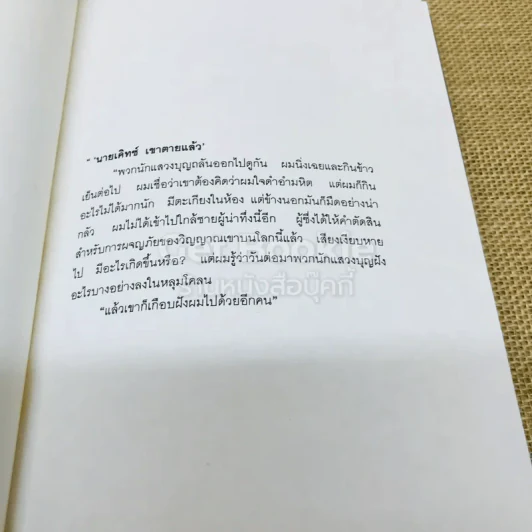 " 'นายเคิทซ์ เขาตายแล้ว'
"พวกนักแสวงบุญถลันออกไปดูกัน ผมนิ่งเฉยและกินข้าว
เย็นต่อไป ผมเชื่อว่าเขาต้องคิดว่าผมใจดำอำมหิต แต่ผมก็กิน
อะไรไม่ได้มากนัก มีตะเกียงในห้อง แต่ข้างนอกมันก็มืดอย่างน่า
กลัว ผมไม่ได้เข้าไปใกล้ชายผู้น่าทึ่งนี้อีก ผู้ซึ่งได้ให้คำตัดสิน
สำหรับการผจญภัยของวิญญาณเขาบนโลกนี้แล้ว เสียงเงียบหาย
ไป มีอะไรเกิดขึ้นหรือ? แต่ผมรู้ว่าวันต่อมาพวกนักแสวงบุญฝัง
อะไรบางอย่างลงในหลุมโคลน
"แล้วเขาก็เกือบฝังผมไปด้วยอีกคน"
ร้านหนังสือบุ๊คกี้